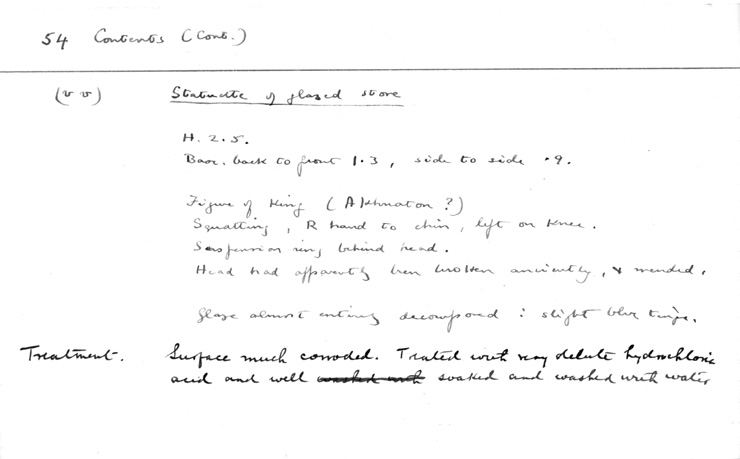 54 Contents (Cont.)
(v v) Statuette of glazed stone
H. 2.5.
Base. back to front 1.3, side to side .9.
Figure of King (Akhnaton ?)
Squatting, R hand to chin, left on knee.
Suspension ring behind head.
Head had apparently been broken anciently, & mended.
Glaze almost entirely decomposed : slight blue tinge.
Treatment. Surface much corroded. Treated with very delute hydrochloric
acid and well washed with soaked and washed with water